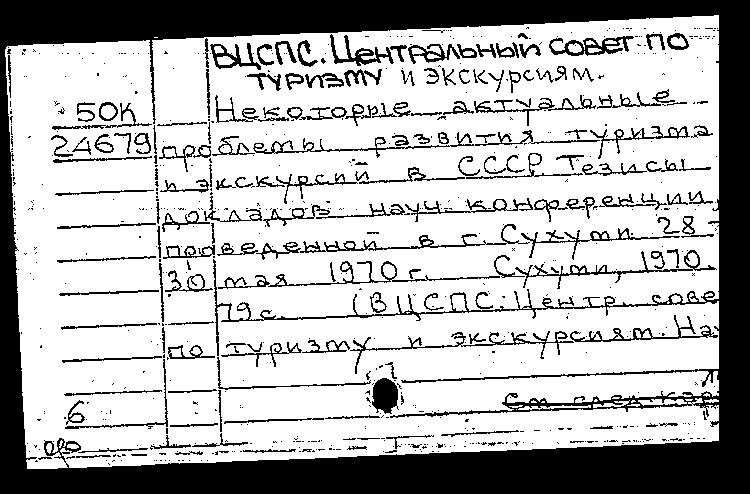 ВЦСПС. Центральный совет по
туризму и экскурсиям.
50К Некоторые актуальные
24679 проблемы развития туризма
и экскурсий в СССР Тезисы
докладов науч. конференции,
проведенной в г. Сухуми 28-
30 мая 1970 г. Сухуми, 1970.
79 с. (ВЦСПС. Центр. сове
по туризму и экскурсиям. На
6 См след. кар